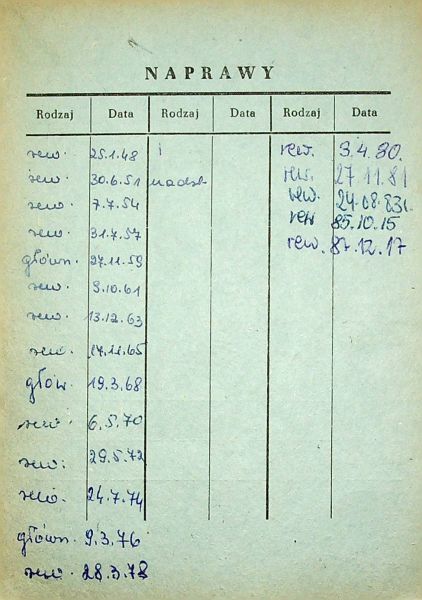 NAPRAWY
Rodzaj Data Rodzaj Data Rodzaj Data
rew. 25.1.48 i rew. 3.4.80.
rew. 30.6.51 nadzb. rew. 27.11.81
rew. 7.7.54 rew. 24.08.83r.
rew. 31.7.57 rew 85.10.15
główn. 27.11.59 rew. 87.12.17
rew. 9.10.61
rew. 13.12.63
rew. 17.11.65
głów. 19.3.68
rew. 6.5.70
rew. 29.5.72
rew. 24.7.74
główn. 9.3.76
rew. 28.3.78